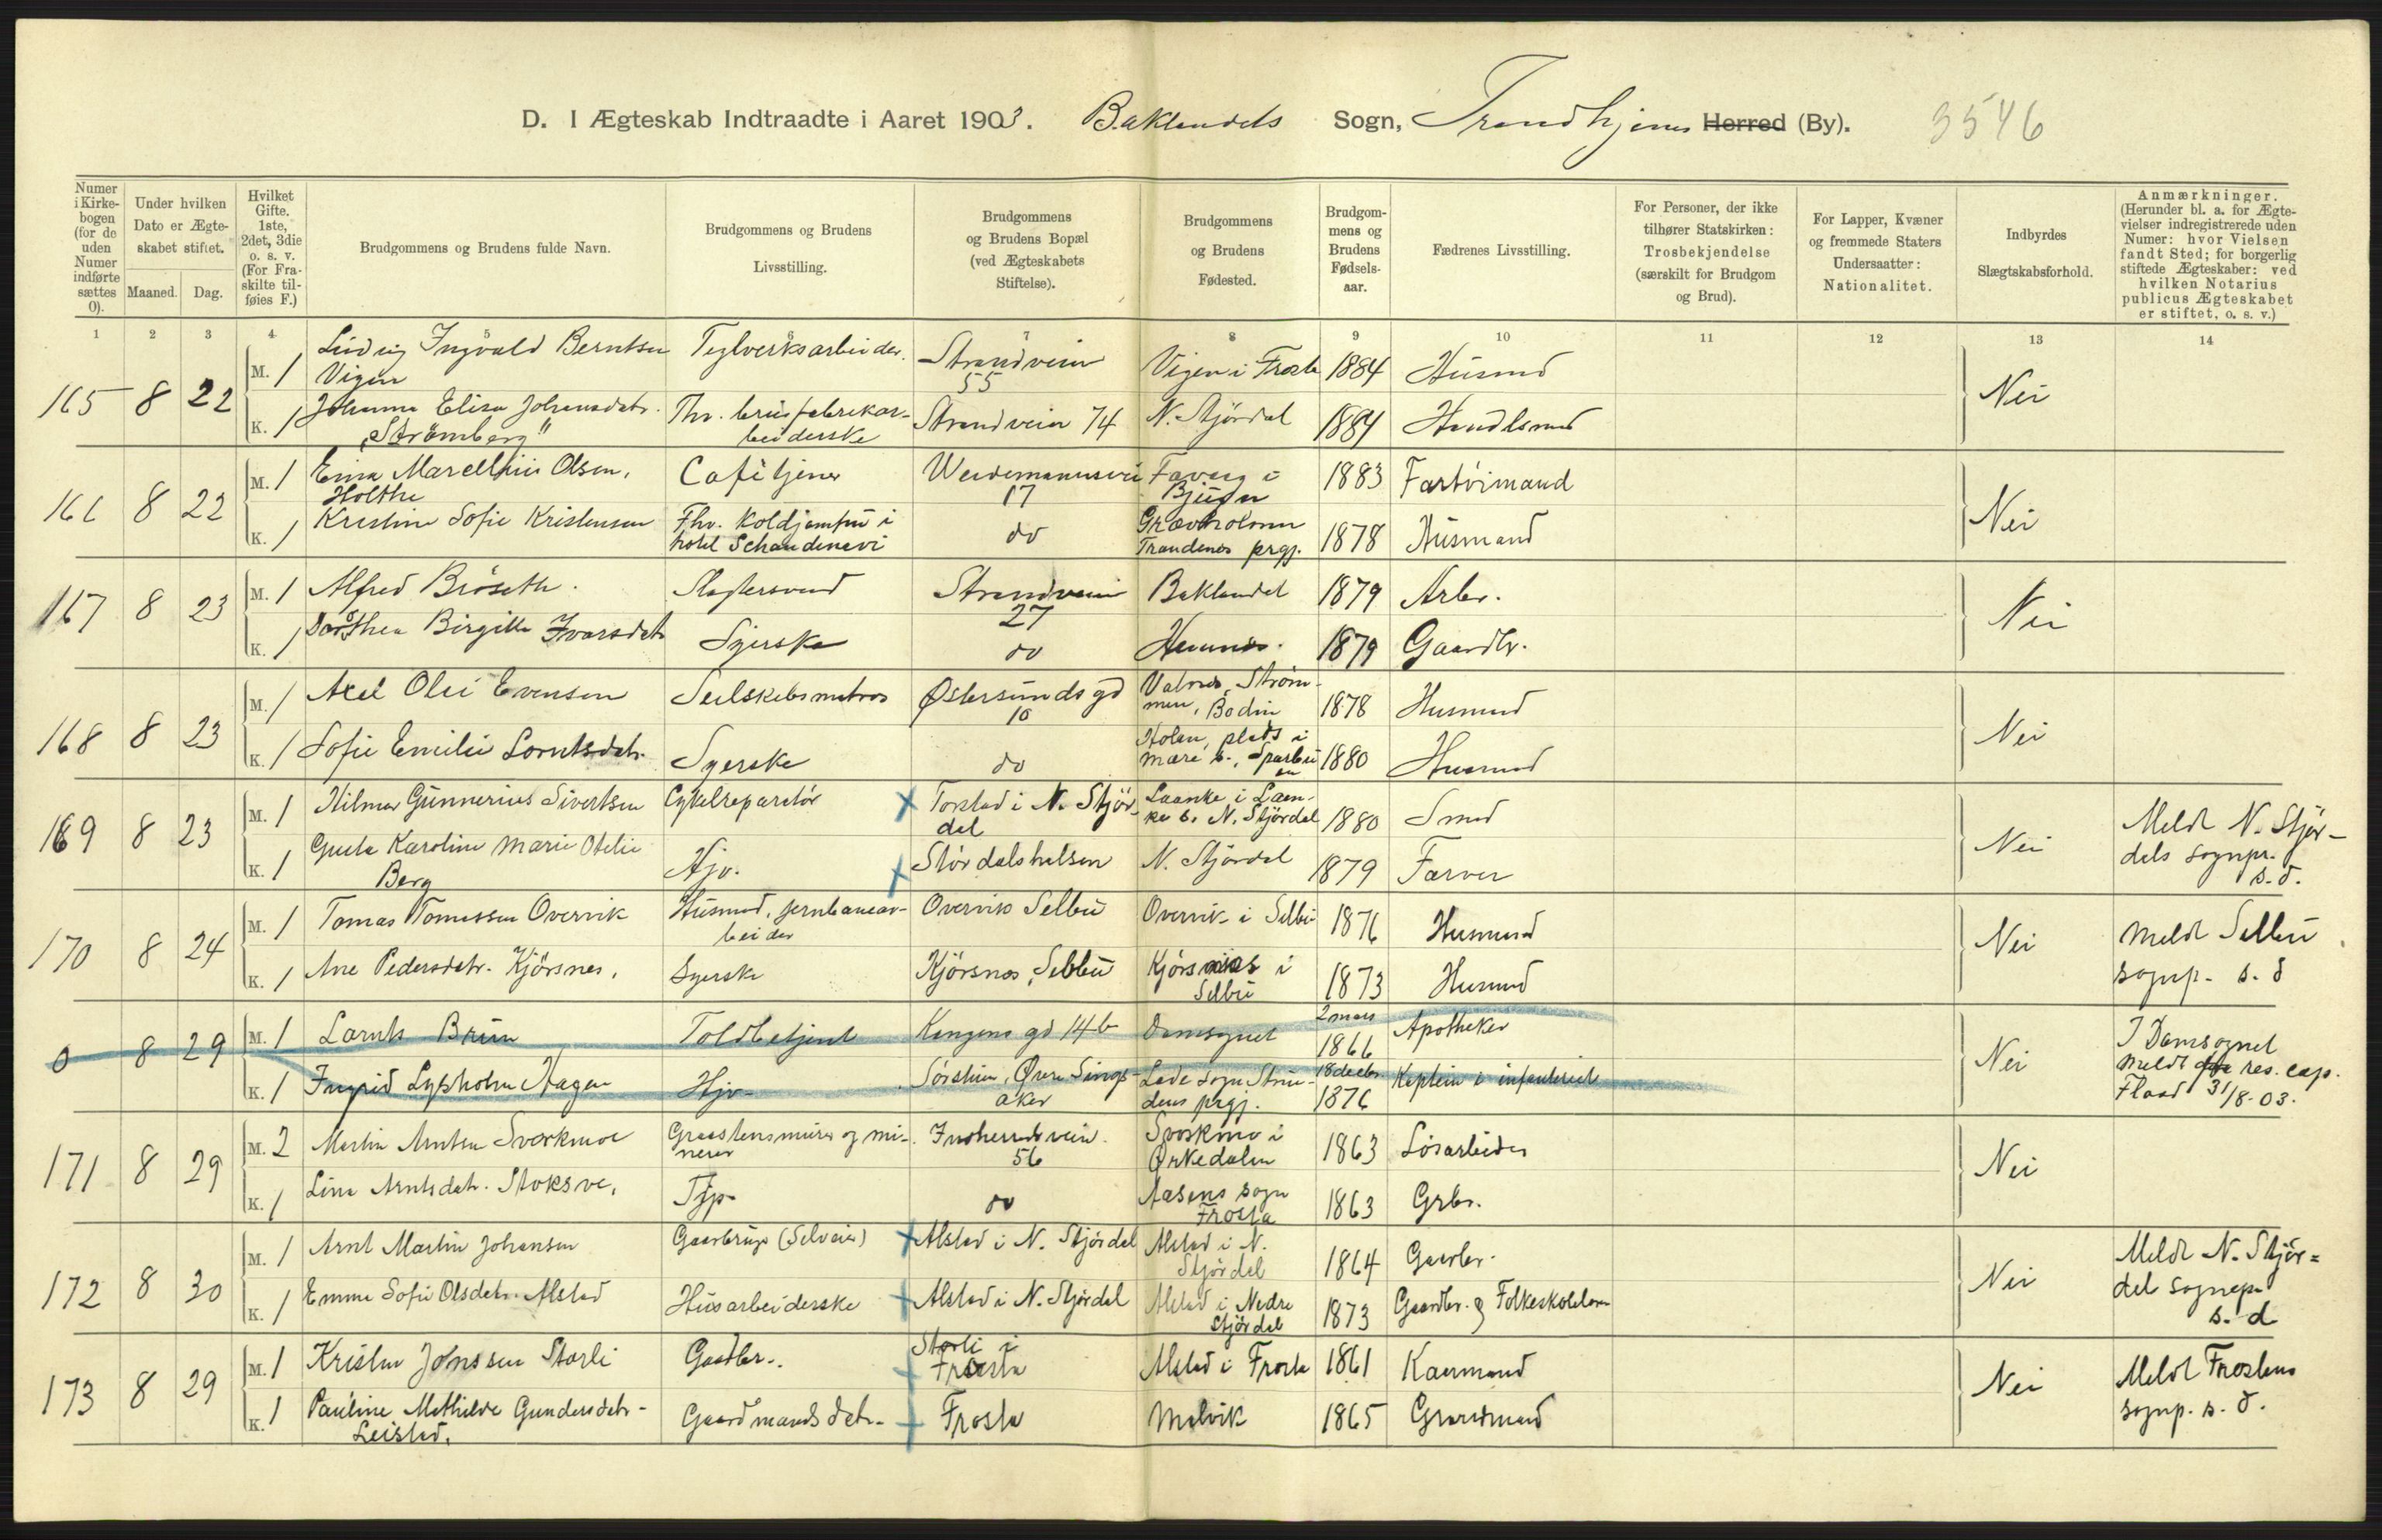 D. I Ægteskab Indtraadte i Aaret 1903. Baklandets Sogn, Trondhjems Herred (By). 3546
Numer i Kirke-bogen (for de uden Numer indførte sættes 0).
Under hvilken Dato er Ægte-skabet stiftet.
Maaned. Dag.
Hvilket Gifte. 1ste, 2det, 3die o. s. v. (For Fra-skilte til-føies F.)
Brudgommens og Brudens fulde Navn.
Brudgommens og Brudens Livsstilling.
Brudgommens og Brudens Bopæl (ved Ægteskabets Stiftelse).
Brudgommens og Brudens Fødested.
Brudgom-mens og Brudens Fødsels-aar.
Fædrenes Livsstilling.
For Personer, der ikke tilhører Statskirken: Trosbekjendelse (særskilt for Brudgom og Brud).
For Lapper, Kvæner og fremmede Staters Undersaatter: Nationalitet.
Indbyrdes Slægtskabsforhold.
Anmærkninger. (Herunder bl. a. for Ægte-vielser indregistrerede uden Numer: hvor Vielsen fandt Sted; for borgerlig stiftede Ægteskaber: ved hvilken Notarius publicus Ægteskabet er stiftet, o. s. v.)
1 2 3 4 5 6 7 8 9 10 11 12 13 14
165 8 22 M. 1 Ludvig Ingvald Berntsen Vigen Teglverksarbeider. Strandveien 55 Vigen i Frosta 1884 Husmd Nei
K. 1 Johanna Elisa Johansdatr. "Strömberg" Fhv. brusfabrikar-beiderske Strandveien 74 N. Stjördal 1884 Handlsmd
166 8 22 M. 1 Marellius Olsen, Holthe Cafétjener Weidemannsvei 17 i Bjugn 1883 Fartöimand Nei
K. 1 Kristine Sofie Kristensen Fhv. Koldjomfru i hotel Schandinavi do Trondenes prgj. 1878 Husmand
167 8 23 M. 1 Alfred Bröseth. Slagtersvend Strandveien 27 Baklandet 1879 Arbr. Nei
K. 1 Dorothea Birgitte Ivarsdatr Syerske do Hemnes. 1879 Gaardbr.
168 8 23 M. 1 Axel Olei Evensen Seilskibsmatros Østersundsgd 10 Valnes, Ström-men, Bodin 1878 Husmand Nei
K. 1 Sofie Emilie Lorntsdatr. Syerske do Holan, plads i Mære s., Sparbuen 1880 Husmand
169 8 23 M. 1 Hilmar Gunnerius Sivertsen Cykelreparatör Torstad i N. Stjör-dal Laanke i Laan-ke s. N. Stjördal 1880 Smed Nei Meldt N. Stjör-dals sognpr. s. d.
K. 1 Gusta Karoline Marie Otelie Berg Hjv. Stördalshalsen N. Stjördal 1879 Farver
170 8 24 M. 1 Tomas Tomassen Overvik Husmd, jernbanear-beider Overvik Selbu Overvik i Selbu 1876 Husmand Nei Meldt Selbu sognp. s. d
K. 1 Ane Pedersdatr. Kjösnes, Syerske Kjösnes, Selbu Kjösnes i Selbu 1873 Husmd
0 8 29 M. 1 Lornts Brun Toldbetjent Kongens gd 14b Domsognet 2 mars 1866 Apotheker Nei I Domsognet meldt res. cap. Flood 31/8-03.
K. 1 Ingrid Lysholm Hagen Hjv. Övre Sings-aker Lade sogn Strin-dens prgj. 18 decbr 1876 Kaptein i infanteriet
171 8 29 M. 2 Martin Arntsen Svorkmoe Graastensmurer og mi-nerer Innherredsveien 56 Svorkmo i Ørkedalen 1863 Lösarbeider Nei
K. 1 Lina Arntsdatr. Stoksve, do Aasens sogn Frosta 1863 Grbr.
172 8 30 M. 1 Arnt Martin Johansen Gaarbruger (Selveier) Alstad i N. Stjördal Alstad i N. Stjördal 1864 Gaarbr. Nei Meldt N. Stjör=dal sognepr s. d
K. 1 Emma Sofie Olsdatr. Alstad Husarbeiderske Alstad i N. Stjördal Alstad i Nedre Stjördal 1873 Gaardbr. og Folkeskolelærer
173 8 29 M. 1 Kristen Jonssen Storli Gaadbr.. Storli i Frosta Alstad i Frosta 1861 Kaarmand Nei Meldt Frostens sognp. s. d.
K. 1 Pauline Mathilde Gundersdatr- Leistad. Gaardmandsdatr. Frosta Malvik 1865 Graardmand